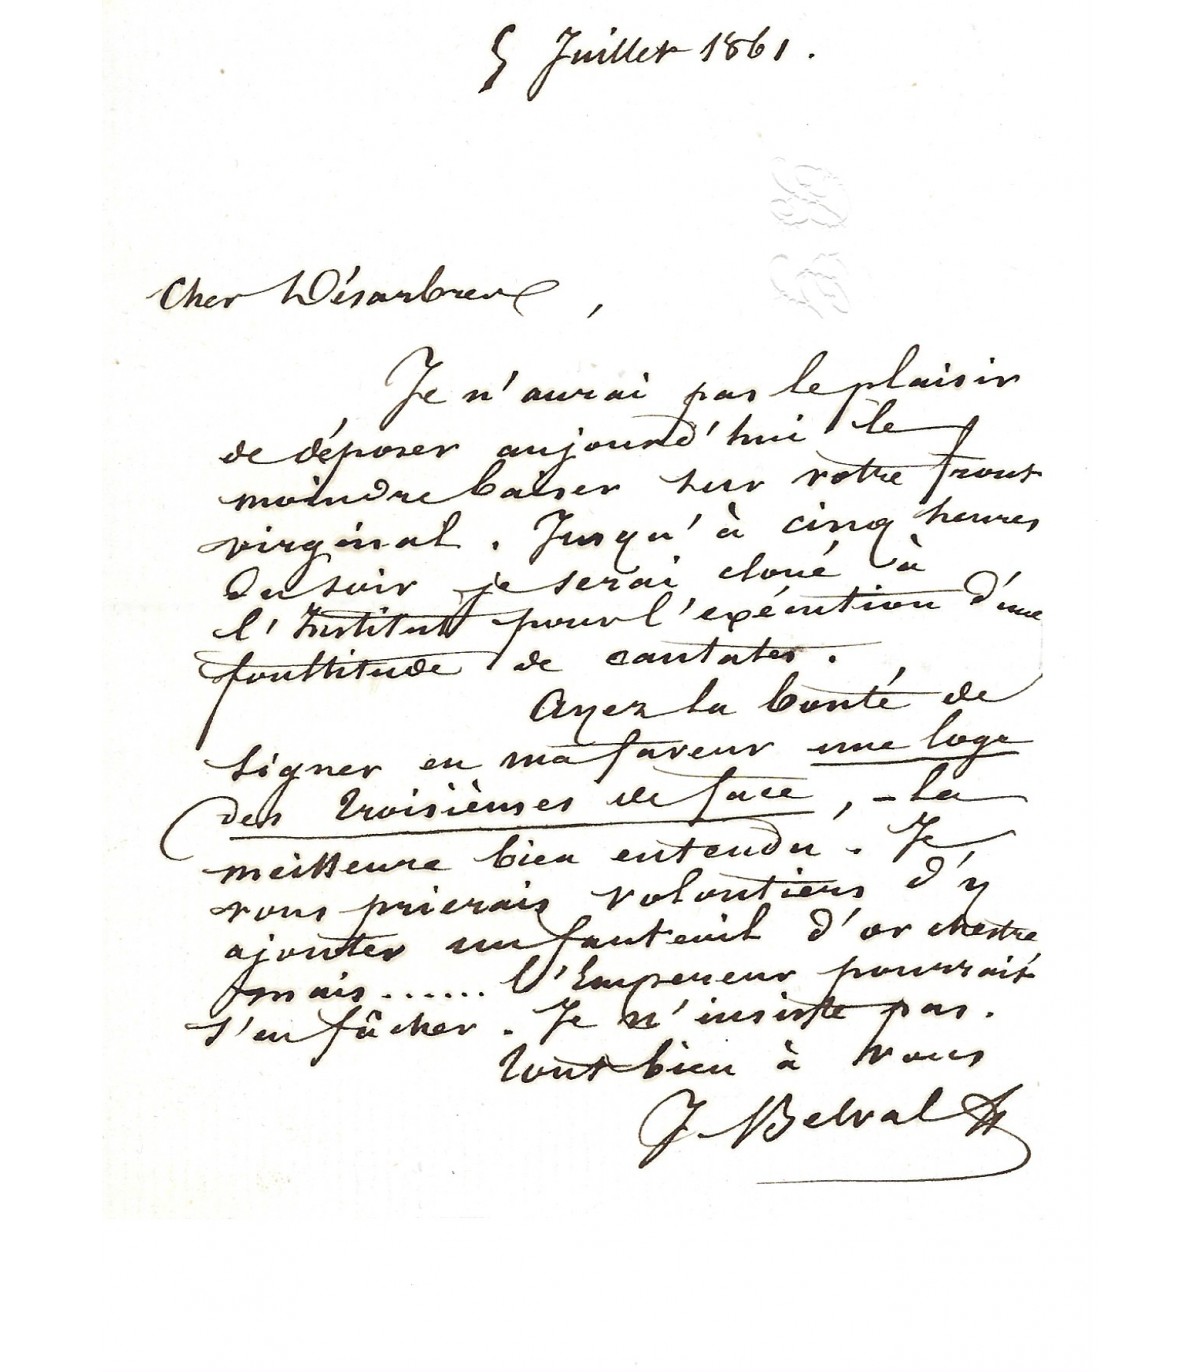 5 Juillet 1861.
Cher Désarbres,
Je n'aurai pas le plaisir
de déposer aujourd'hui le
moindre baiser sur votre front
virginal. Jusqu'à cinq heures
du soir je serai cloué à
l'Institut pour l'exécution d'une
foultitude de cantates.
Ayez la bonté de
signer en ma faveur une loge
des troisièmes de face, - la
meilleure bien entendu. Je
vous prierais volontiers d'y
ajouter un fauteuil d'orchestre
mais...... l'Empereur pourrait
s'en fâcher. Je n'insiste pas.
Tout bien à vous
J. Belval